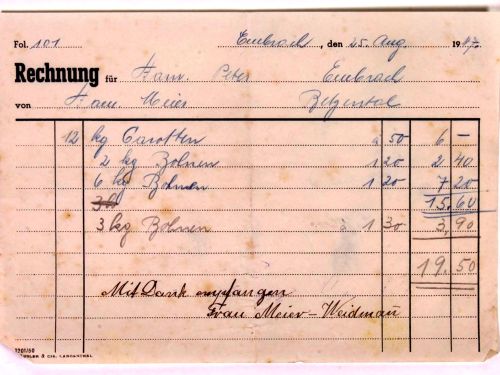 Fol. 101 Embrach, den 25. Aug. 1947
Rechnung für Fam. Peter Embrach
von Fam. Meier
12 kg Carotten à 50 6 –
2 kg Bohnen 1 20 2 40
6 kg Bohnen 1 20 7 20
15.60
3 kg Bohnen à 1 30 3,90
19.50
Mit Dank empfangen
Frau Meier-Weidmann
1201/50
& CIE. LANGENTHAL